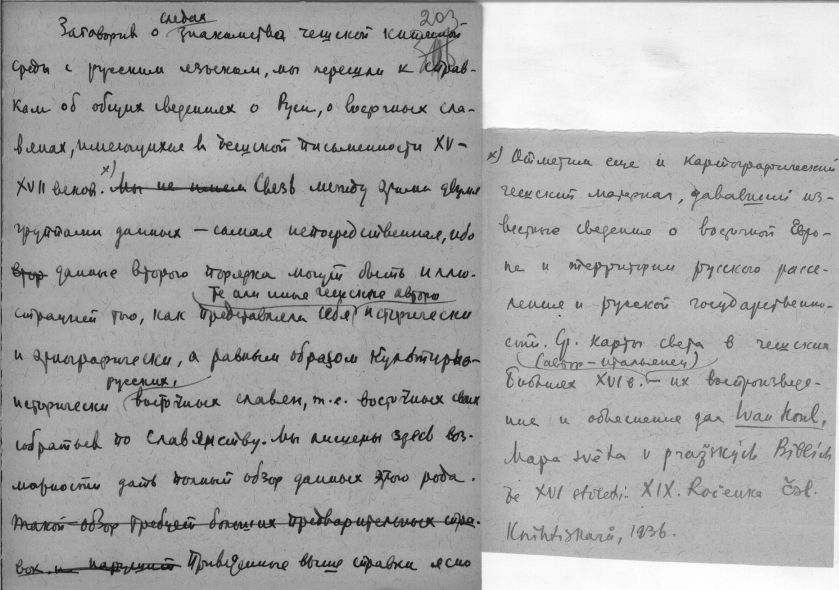 203
следах
Заговорив о знакомства чешской книжной
среды с русским языком, мы перешли к справ-
кам об общих сведениях о Руси, о восточных сла-
вянах, имеющихся в чешской письменности XV–
XVII веков. x) Мы не имеем Связь между этими двумя
группами данных – самая непосредственная, ибо
втор данные второго порядка могут быть иллю-
те или иные чешские авторы
страцией того, как представляли себе исторически
и этнографически, а равным образом культурно-
русских,
исторически восточных славян, т.е. восточных своих
собратьев по славянству. Мы лишены здесь воз-
можности дать полный обзор данных этого рода.
Такой обзор требует больших предварительных спра-
вок и нарушит Приведенные выше справки ясно
x) Отметим еще и картографический
чешский материал, дававший из-
вестные сведения о восточной Евро-
пе и территории русского рассе-
ления и русской государственно-
сти. Ср. карты света в чешских
(автор – итальянец)
Библиях XVI в. – их воспроизведе-
ние и объяснение дал Ivan Honl,
Mapa světa v pražských Biblích
ze XVI století. XIX. Ročenka Čsl.
Knihtiskařů, 1936.